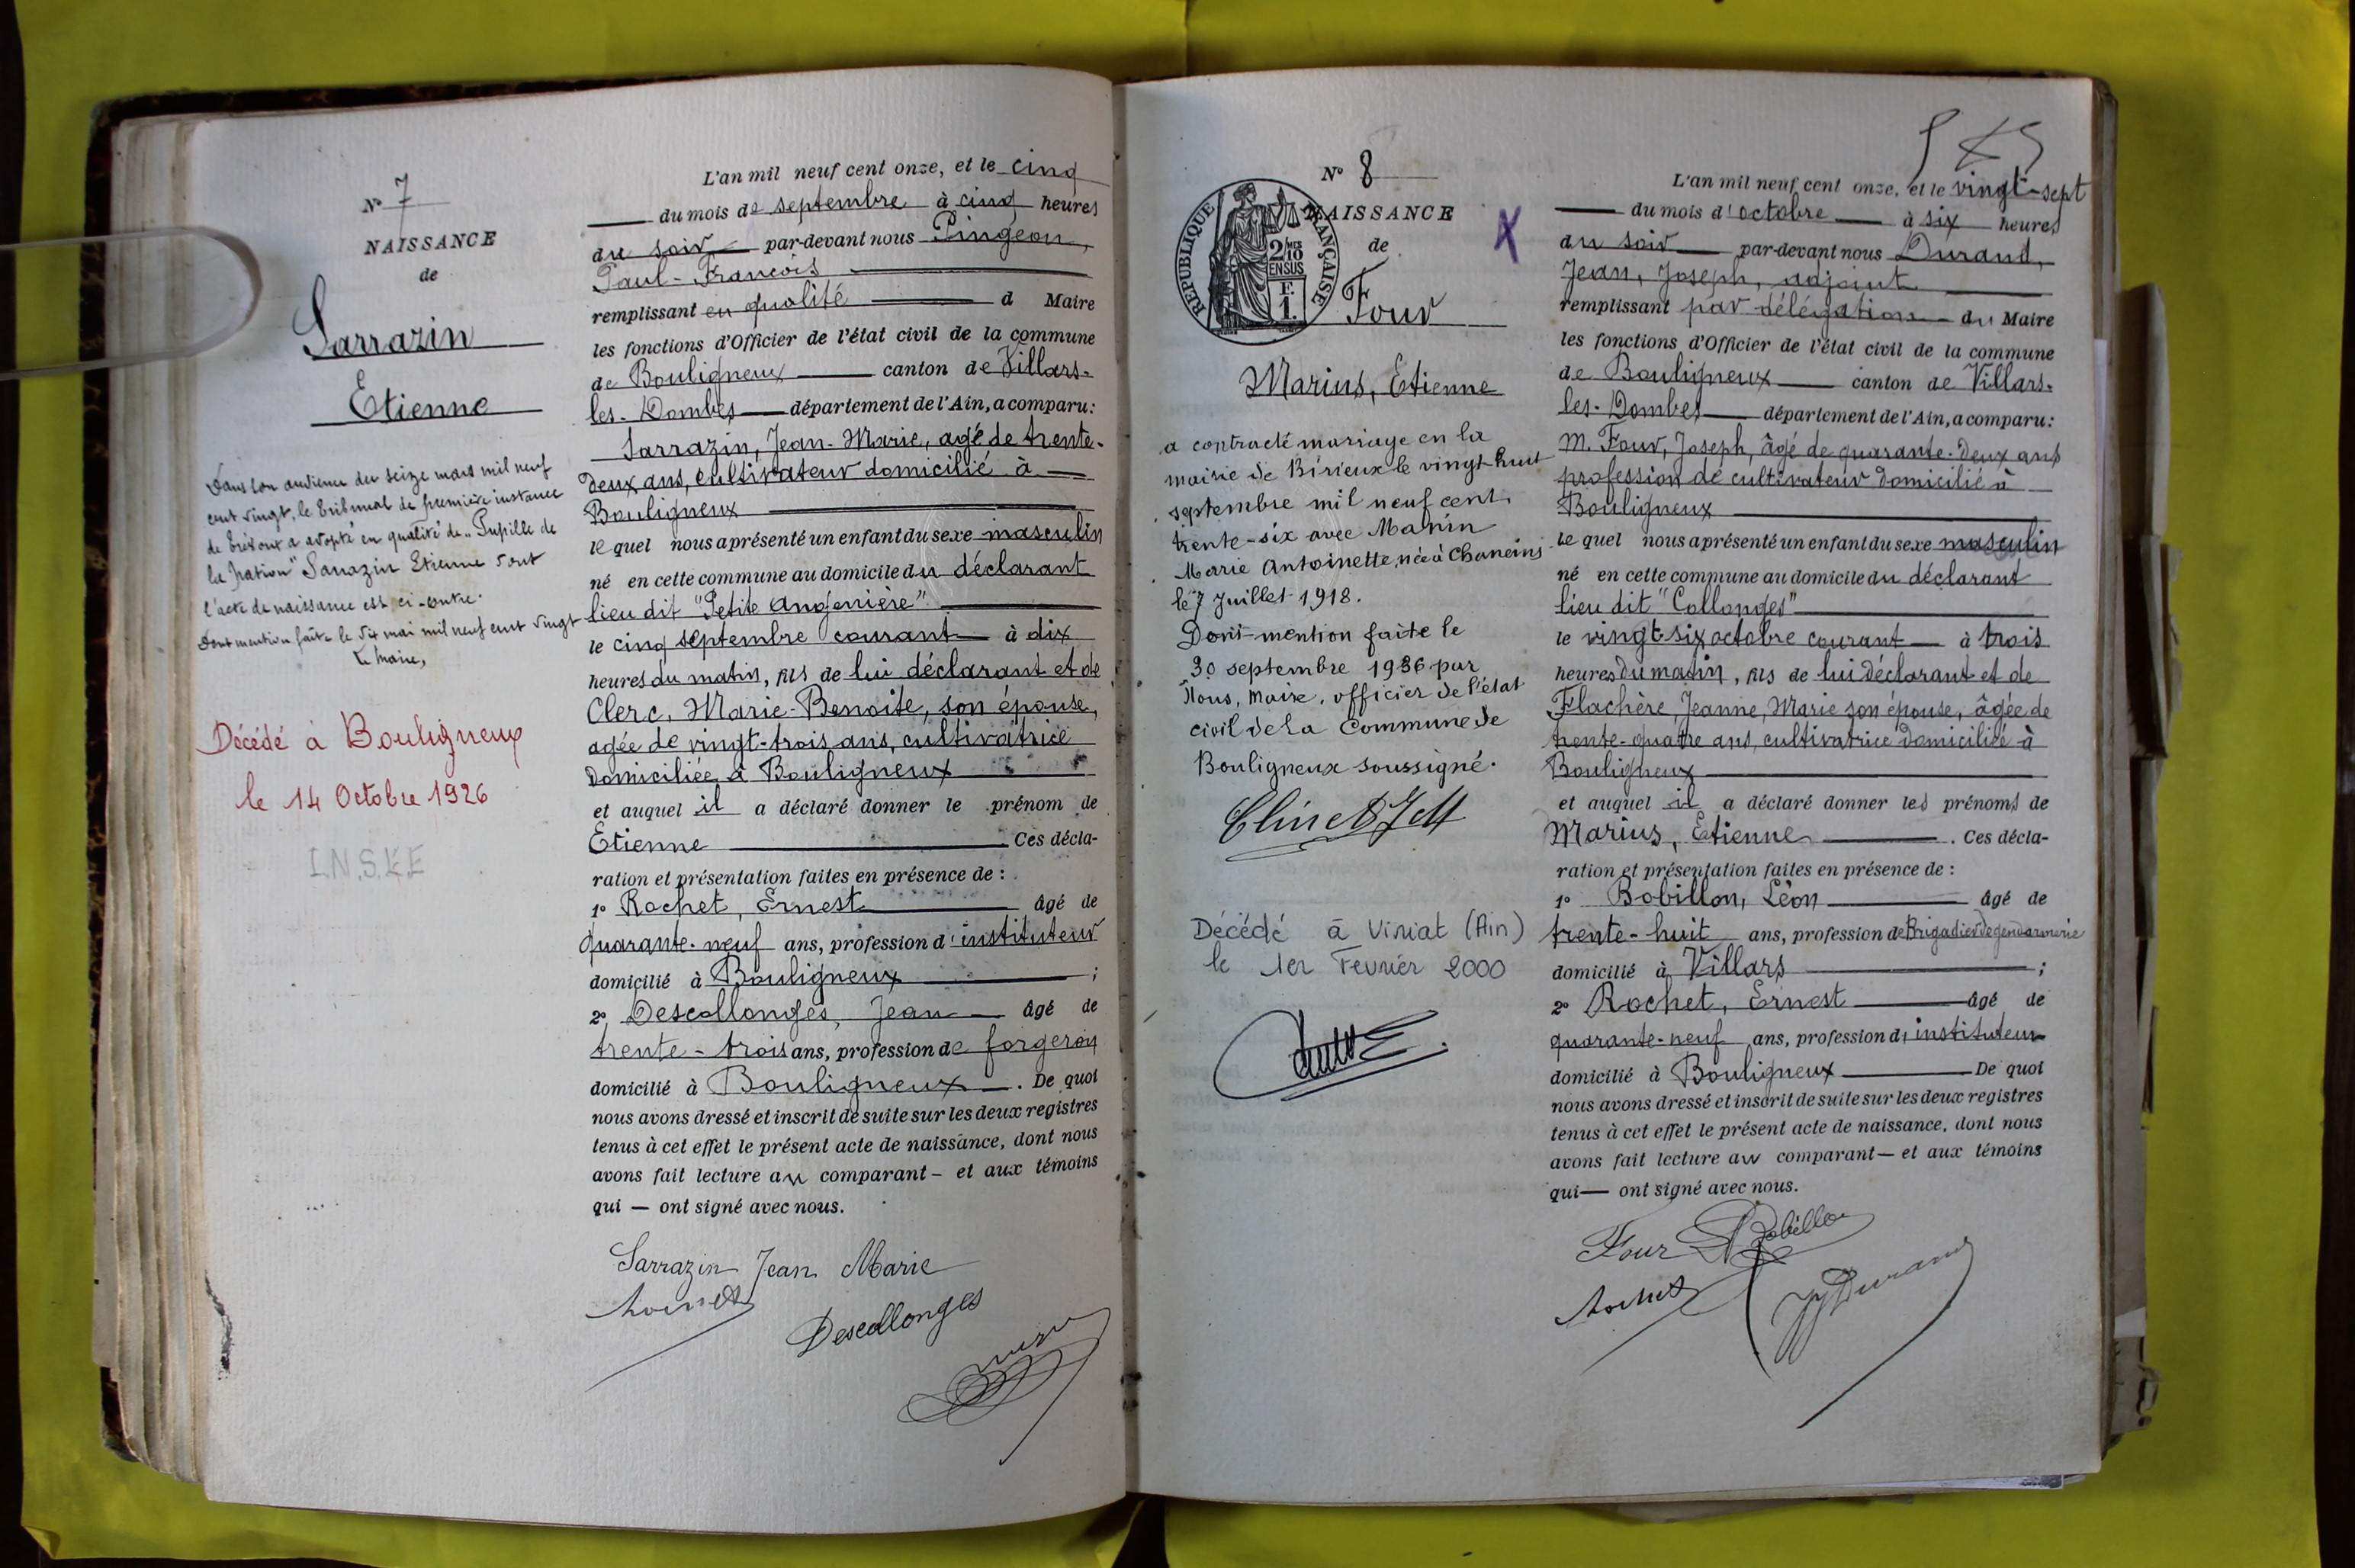 N° 7
NAISSANCE
de
Sarrazin
Etienne
Dans son audience du seize mars mil neuf
cent vingt, le Tribunal de première instance
de Trévoux a adopté en qualité de "Pupille de
la Nation" Sarrazin Etienne dont
l'acte de naissance est ci-contre.
Dont mention faite le dix mai mil neuf cent vingt
Le Maire,
Décédé à Bouligneux
le 14 Octobre 1926
I.N.S.E.E
L'an mil neuf cent onze, et le cinq
du mois de septembre à cinq heures
du soir par-devant nous Pingeon,
Paul-François
remplissant en qualité d Maire
les fonctions d'Officier de l'état civil de la commune
de Bouligneux canton de Villars-
les-Dombes département de l'Ain, a comparu:
Sarrazin, Jean-Marie, agé de trente-
deux ans, cultivateur domicilié à
Bouligneux
le quel nous a présenté un enfant du sexe masculin
né en cette commune au domicile du déclarant
lieu dit "Petite Angenière"
le cinq septembre courant à dix
heures du matin, fils de lui déclarant et de
Clerc, Marie-Benoite, son épouse,
agée de vingt-trois ans, cultivatrice
domiciliée à Bouligneux
et auquel il a déclaré donner le prénom de
Etienne Ces décla-
ration et présentation faites en présence de :
1° Rochet, Ernest âgé de
quarante-neuf ans, profession d'instituteur
domicilié à Bouligneux ;
2° Descollonges, Jean âgé de
trente-trois ans, profession de forgeron
domicilié à Bouligneux . De quoi
nous avons dressé et inscrit de suite sur les deux registres
tenus à cet effet le présent acte de naissance, dont nous
avons fait lecture au comparant - et aux témoins
qui — ont signé avec nous.
Sarrazin Jean Marie
Rochet
Descollonges
N° 8
NAISSANCE
de
REPUBLIQUE FRANÇAISE
2/10 MES
EN SUS
F.
1.
X
Four
Marius, Etienne
a contracté mariage en la
mairie de Birieux le vingt-huit
septembre mil neuf cent
trente-six avec Manin
Marie Antoinette, née à Chaneins
le 7 Juillet 1918.
Dont mention faite le
30 septembre 1936 par
Nous, Maire, officier de l'état
civil de la Commune de
Bouligneux soussigné.
Décédé à Viriat (Ain)
le 1er Février 2000
L'an mil neuf cent onze, et le vingt-sept
du mois d'octobre à six heures
du soir par-devant nous Durand,
Jean, Joseph, adjoint
remplissant par délégation du Maire
les fonctions d'Officier de l'état civil de la commune
de Bouligneux canton de Villars-
les-Dombes département de l'Ain, a comparu:
M. Four, Joseph, âgé de quarante-deux ans
profession de cultivateur domicilié à
Bouligneux
le quel nous a présenté un enfant du sexe masculin
né en cette commune au domicile du déclarant
lieu dit "Collonges"
le vingt-six octobre courant à trois
heures du matin, fils de lui déclarant et de
Flachère, Jeanne, Marie son épouse, âgée de
trente-quatre ans, cultivatrice domiciliée à
Bouligneux
et auquel il a déclaré donner les prénoms de
Marius, Etienne . Ces décla-
ration et présentation faites en présence de :
1° Bobillon, Léon âgé de
trente-huit ans, profession de Brigadier de gendarmerie
domicilié à Villars ;
2° Rochet, Ernest âgé de
quarante-neuf ans, profession d'instituteur
domicilié à Bouligneux De quoi
nous avons dressé et inscrit de suite sur les deux registres
tenus à cet effet le présent acte de naissance, dont nous
avons fait lecture au comparant — et aux témoins
qui — ont signé avec nous.
Four Bobillon
Rochet JJ Durand